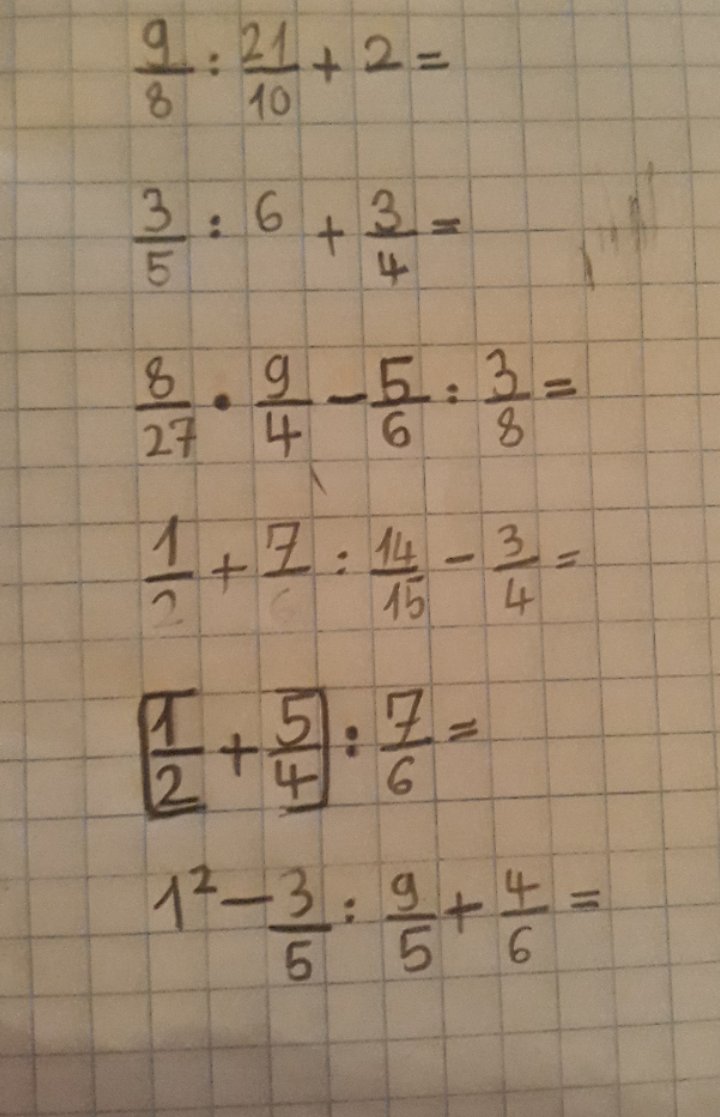 9/8 : 21/10 + 2 =
3/5 : 6 + 3/4 =
8/27 · 9/4 − 5/6 : 3/8 =
1/2 + 7/6 : 14/15 − 3/4 =
[1/2 + 5/4] : 7/6 =
1² − 3/5 : 9/5 + 4/6 =